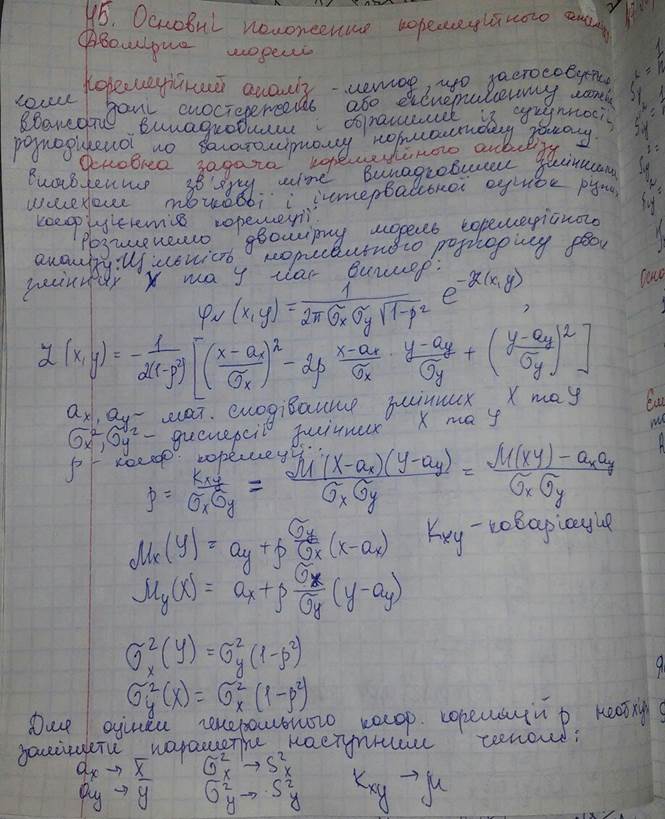 45. Основні положення кореляційного аналізу
Двомірна модель
Кореляційний аналіз - метод, що застосовується
коли дані спостережень або експерименту можна
вважати випадковими і обраними із сукупності,
розподіленої по багатомірному нормальному закону.
Основна задача кореляційного аналізу
виявлення зв'язку між випадковими змінними
шляхом точкової і інтервальної оцінок різних
коефіцієнтів кореляції.
Розглянемо двомірну модель кореляційного
аналізу. Щільність нормального розподілу двох
змінних X та Y має вигляд:
φN(x,y) = 1/(2πσxσy√(1-ρ²)) e^(-L(x,y)),
L(x,y) = -1/(2(1-ρ²)) [((x-ax)/σx)² - 2ρ (x-ax)/σx · (y-ay)/σy + ((y-ay)/σy)²]
ax, ay - мат. сподівання змінних X та Y
σx², σy² - дисперсії змінних X та Y
ρ - коеф. кореляції:
ρ = Kxy/(σxσy) = M(X-ax)(Y-ay)/(σxσy) = (M(XY) - axay)/(σxσy)
Mx(Y) = ay + ρ σy/σx (x-ax) Kxy - коваріація
My(X) = ax + ρ σx/σy (y-ay)
σx²(Y) = σy²(1-ρ²)
σy²(X) = σx²(1-ρ²)
Для оцінки генерального коеф. кореляції ρ необхідно
замінити параметри наступним чином:
ax → x̄ σx² → Sx² Kxy → μ
ay → ȳ σy² → Sy²